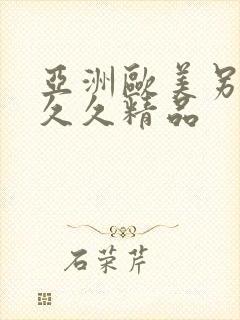 亞洲歐美另
久久精品
石荣芹